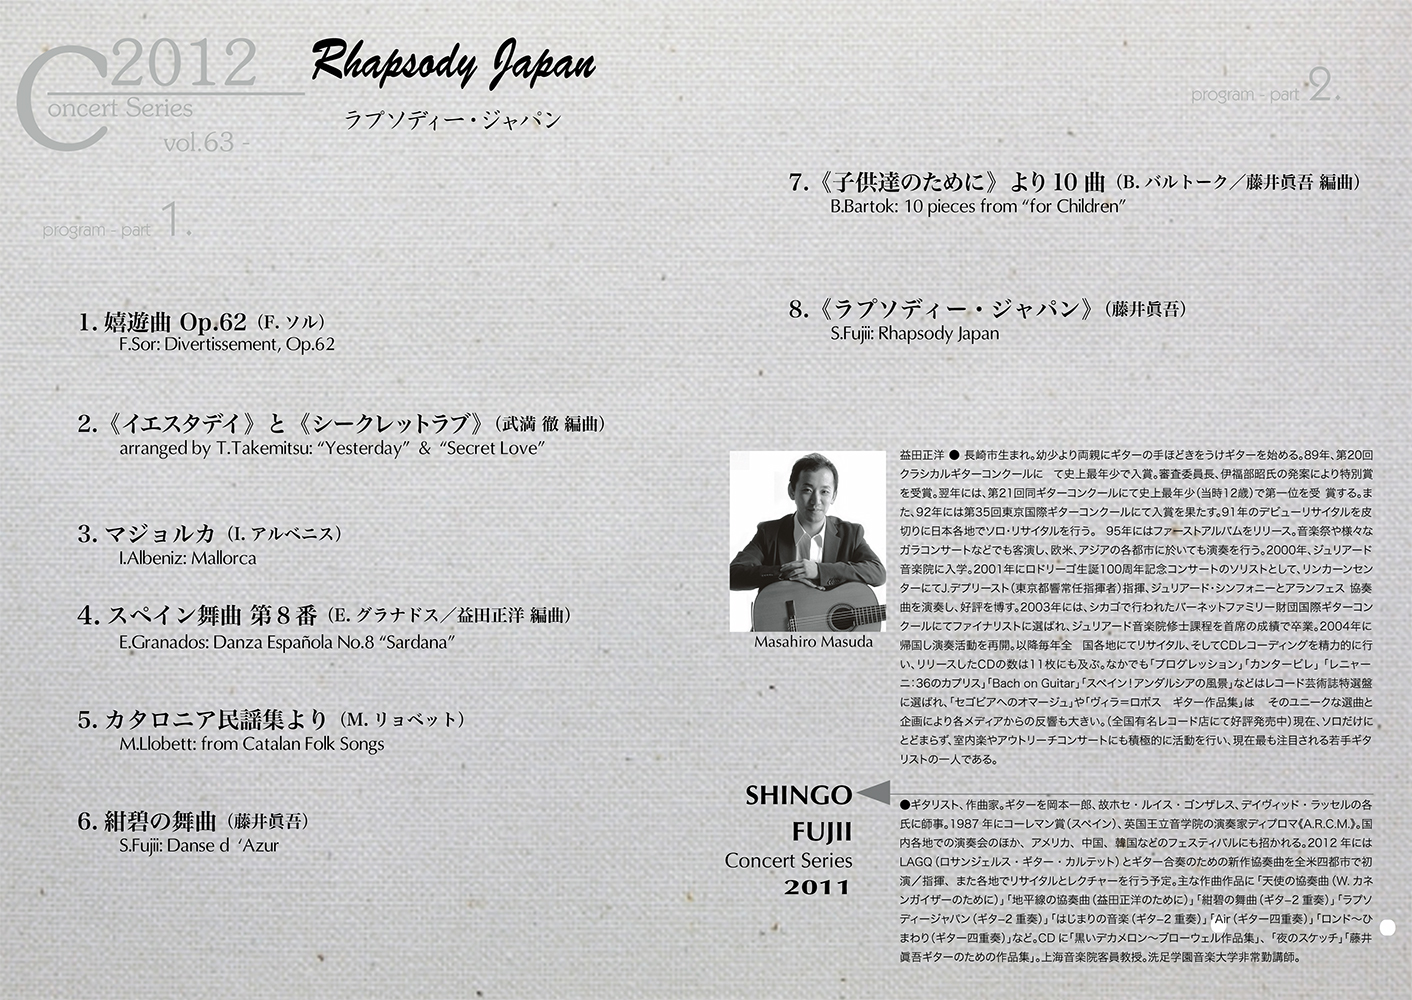 2012
Concert Series
vol.63 -
Rhapsody Japan
ラプソディー・ジャパン
program - part 1.
1. 嬉遊曲 Op.62（F. ソル）
F.Sor: Divertissement, Op.62
2.《イエスタデイ》と《シークレットラブ》（武満 徹 編曲）
arranged by T.Takemitsu: “Yesterday” & “Secret Love”
3. マジョルカ（I. アルベニス）
I.Albeniz: Mallorca
4. スペイン舞曲 第８番（E. グラナドス／益田正洋 編曲）
E.Granados: Danza Española No.8 “Sardana”
5. カタロニア民謡集より（M. リョベット）
M.Llobett: from Catalan Folk Songs
6. 紺碧の舞曲（藤井眞吾）
S.Fujii: Danse d ‘Azur
program - part 2.
7.《子供達のために》より 10 曲（B. バルトーク／藤井眞吾 編曲）
B.Bartok: 10 pieces from “for Children”
8.《ラプソディー・ジャパン》（藤井眞吾）
S.Fujii: Rhapsody Japan
Masahiro Masuda
益田正洋 ● 長崎市生まれ。幼少より両親にギターの手ほどきをうけギターを始める。89年、第20回
クラシカルギターコンクールに　て史上最年少で入賞。審査委員長、伊福部昭氏の発案により特別賞
を受賞。翌年には、第21回同ギターコンクールにて史上最年少（当時12歳）で第一位を受 賞する。ま
た、92年には第35回東京国際ギターコンクールにて入賞を果たす。91年のデビューリサイタルを皮
切りに日本各地でソロ・リサイタルを行う。　95年にはファーストアルバムをリリース。音楽祭や様々な
ガラコンサートなどでも客演し、欧米、アジアの各都市に於いても演奏を行う。2000年、ジュリアード
音楽院に入学。2001年にロドリーゴ生誕100周年記念コンサートのソリストとして、リンカーンセン
ターにてJ.デプリースト（東京都響常任指揮者）指揮、ジュリアード・シンフォニーとアランフェス 協奏
曲を演奏し、好評を博す。2003年には、シカゴで行われたバーネットファミリー財団国際ギターコン
クールにてファイナリストに選ばれ、ジュリアード音楽院修士課程を首席の成績で卒業。2004年に
帰国し演奏活動を再開。以降毎年全　国各地にてリサイタル、そしてCDレコーディングを精力的に行
い、リリースしたCDの数は11枚にも及ぶ。なかでも「プログレッション」「カンタービレ」「レニャー
ニ：36のカプリス」「Bach on Guitar」「スペイン！アンダルシアの風景」などはレコード芸術誌特選盤
に選ばれ、「セゴビアへのオマージュ」や「ヴィラ＝ロボス　ギター作品集」は　そのユニークな選曲と
企画により各メディアからの反響も大きい。（全国有名レコード店にて好評発売中）現在、ソロだけに
とどまらず、室内楽やアウトリーチコンサートにも積極的に活動を行い、現在最も注目される若手ギタ
リストの一人である。
SHINGO
FUJII
Concert Series
2011
●ギタリスト、作曲家。ギターを岡本一郎、故ホセ・ルイス・ゴンザレス、デイヴィッド・ラッセルの各
氏に師事。1987 年にコーレマン賞（スペイン）、英国王立音学院の演奏家ディプロマ《A.R.C.M.》。国
内各地での演奏会のほか、アメリカ、中国、韓国などのフェスティバルにも招かれる。2012 年には
LAGQ（ロサンジェルス・ギター・カルテット）とギター合奏のための新作協奏曲を全米四都市で初
演／指揮、また各地でリサイタルとレクチャーを行う予定。主な作曲作品に「天使の協奏曲（W. カネ
ンガイザーのために）」「地平線の協奏曲（益田正洋のために）」「紺碧の舞曲（ギター2 重奏）」「ラプソ
ディージャパン（ギター2 重奏）」「はじまりの音楽（ギター2 重奏）」「Air（ギター四重奏）」「ロンド〜ひ
まわり（ギター四重奏）」など。CD に「黒いデカメロン〜ブローウェル作品集」、「夜のスケッチ」「藤井
眞吾ギターのための作品集」。上海音楽院客員教授。洗足学園音楽大学非常勤講師。